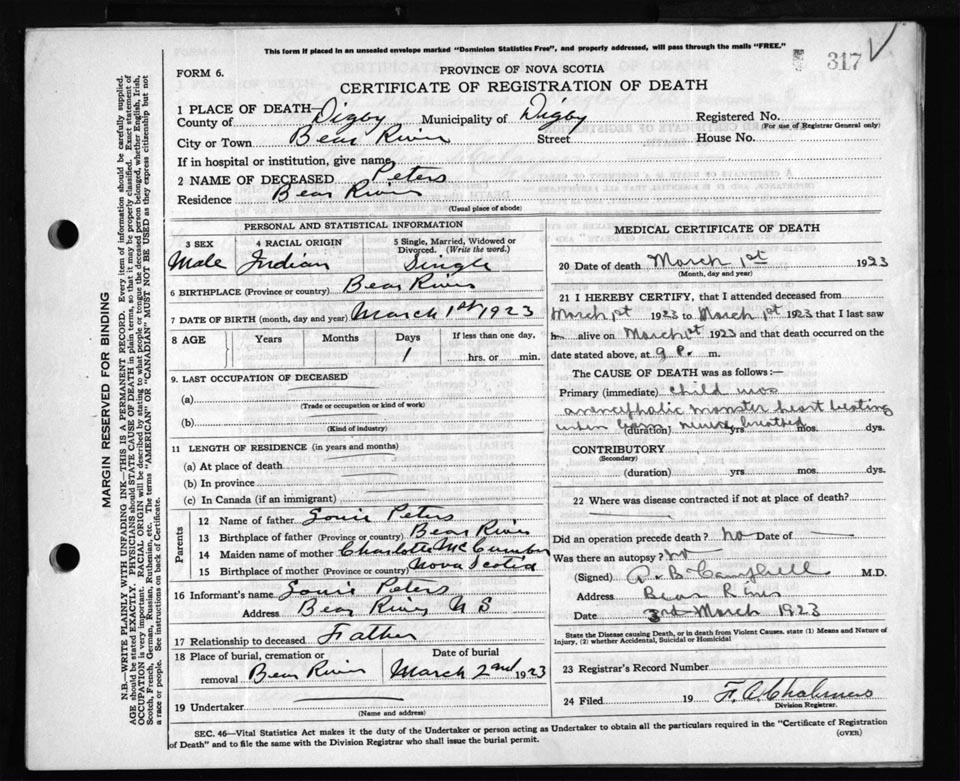 This form if placed in an unsealed envelope marked "Dominion Statistics Free", and properly addressed, will pass through the mails "FREE."
317
FORM 6.
PROVINCE OF NOVA SCOTIA
CERTIFICATE OF REGISTRATION OF DEATH
1 PLACE OF DEATH—
County of Digby Municipality of Digby Registered No.
(For use of Registrar General only)
City or Town Bear River Street House No.
If in hospital or institution, give name
2 NAME OF DECEASED Peters
Residence Bear River
(Usual place of abode)
PERSONAL AND STATISTICAL INFORMATION
3 SEX 4 RACIAL ORIGIN 5 Single, Married, Widowed or Divorced. (Write the word.)
Male Indian Single
6 BIRTHPLACE (Province or country) Bear River
7 DATE OF BIRTH (month, day and year) March 1st 1923
8 AGE Years Months Days If less than one day,
1 hrs. or min.
9. LAST OCCUPATION OF DECEASED
(a)
(Trade or occupation or kind of work)
(b)
(Kind of industry)
11 LENGTH OF RESIDENCE (in years and months)
(a) At place of death
(b) In province
(c) In Canada (if an immigrant)
Parents
12 Name of father Louis Peters
13 Birthplace of father (Province or country) Bear River
14 Maiden name of mother Charlotte McCumber
15 Birthplace of mother (Province or country) Nova Scotia
16 Informant's name Louis Peters
Address Bear River N S
17 Relationship to deceased Father
18 Place of burial, cremation or removal Bear River
Date of burial
March 2nd 1923
19 Undertaker
(Name and address)
MEDICAL CERTIFICATE OF DEATH
20 Date of death March 1st 1923
(Month, day and year)
21 I HEREBY CERTIFY, that I attended deceased from
March 1st 1923 to March 1st 1923 that I last saw
h alive on March 1st 1923 and that death occurred on the
date stated above, at 9 P. m.
The CAUSE OF DEATH was as follows :—
Primary (immediate) Child was
anencephalic monster heart beating
when born never breathed
(duration) yrs. mos. dys.
CONTRIBUTORY
(Secondary)
(duration) yrs. mos. dys.
22 Where was disease contracted if not at place of death?
Did an operation precede death? no Date of
Was there an autopsy? no
(Signed) B Campbell M.D.
Address Bear River
Date 3rd March 1923
State the Disease causing Death, or in death from Violent Causes, state (1) Means and Nature of
Injury, (2) whether Accidental, Suicidal or Homicidal
23 Registrar's Record Number
24 Filed 19 F. A. Chalmers
Division Registrar.
SEC. 46—Vital Statistics Act makes it the duty of the Undertaker or person acting as Undertaker to obtain all the particulars required in the "Certificate of Registration
of Death" and to file the same with the Division Registrar who shall issue the burial permit.
(OVER)
MARGIN RESERVED FOR BINDING
N.B.—WRITE PLAINLY WITH UNFADING INK—THIS IS A PERMANENT RECORD. Every item of information should be carefully supplied.
AGE should be stated EXACTLY. PHYSICIANS should STATE CAUSE OF DEATH in plain terms, so that it may be properly classified. Exact statement of
OCCUPATION is very important. RACIAL ORIGIN will be described by stating to what people or tongue the deceased person belonged, whether English, Irish,
Scotch, French, German, Russian, Ruthenian, etc. The terms "AMERICAN" or "CANADIAN" MUST NOT BE USED as they express citizenship but not
a race or people. See instructions on back of Certificate.